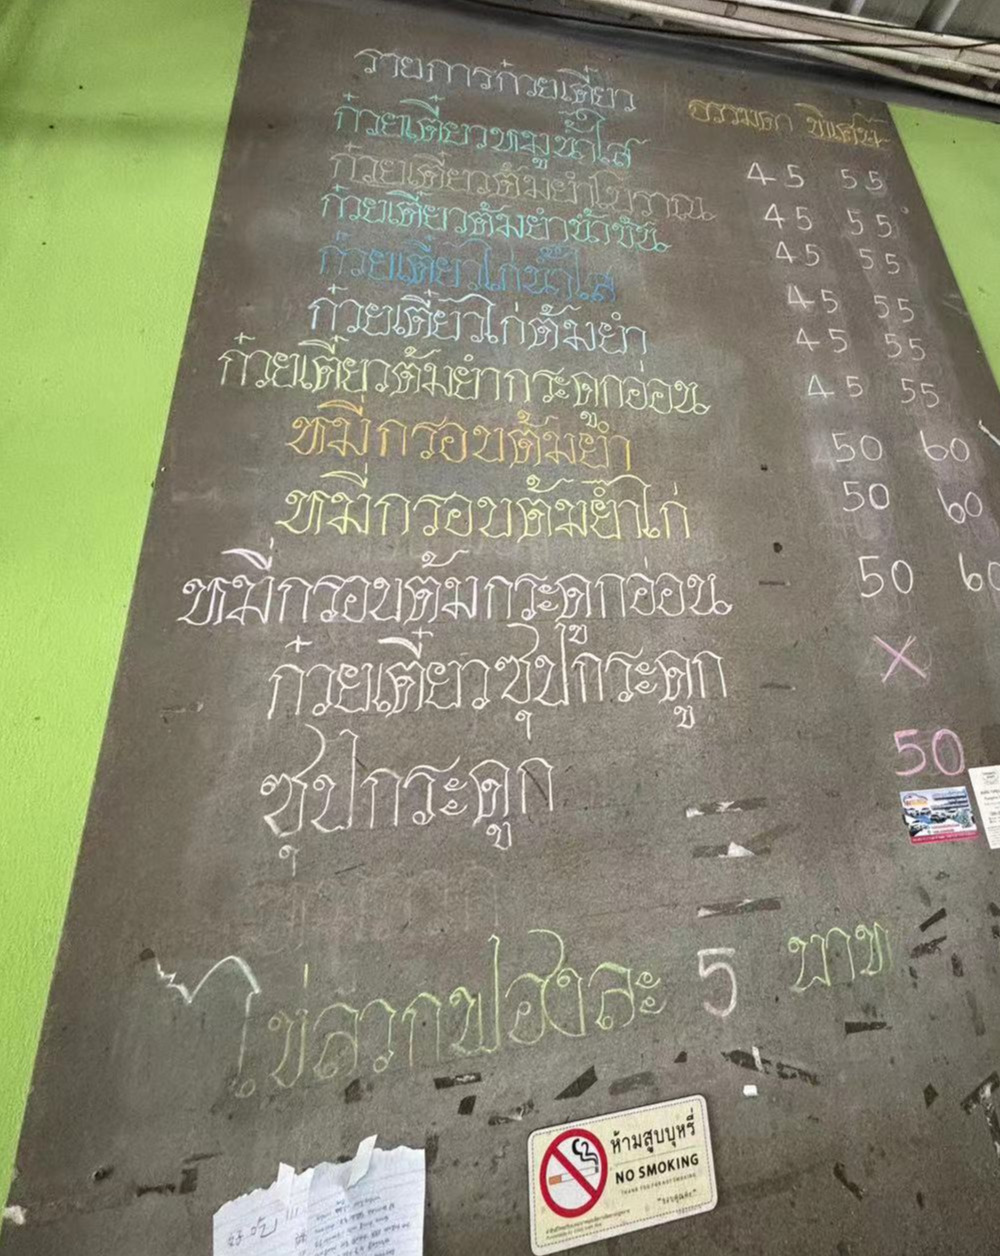 รายการก๋วยเตี๋ยว ธรรมดา พิเศษ
ก๋วยเตี๋ยวหมูน้ำใส 45 55
ก๋วยเตี๋ยวต้มยำโบราณ 45 55
ก๋วยเตี๋ยวต้มยำน้ำข้น 45 55
ก๋วยเตี๋ยวไก่น้ำใส 45 55
ก๋วยเตี๋ยวไก่ต้มยำ 45 55
ก๋วยเตี๋ยวต้มยำกระดูกอ่อน 45 55
หมี่กรอบต้มยำ 50 60
หมี่กรอบต้มยำไก่ 50 60
หมี่กรอบต้มกระดูกอ่อน 50 60
ก๋วยเตี๋ยวซุปกระดูก X
ซุปกระดูก 50
ไข่ลวกฟองละ 5 บาท
ห้ามสูบบุหรี่
NO SMOKING
THANK YOU FOR NOT SMOKING
"ขอบคุณค่ะ"